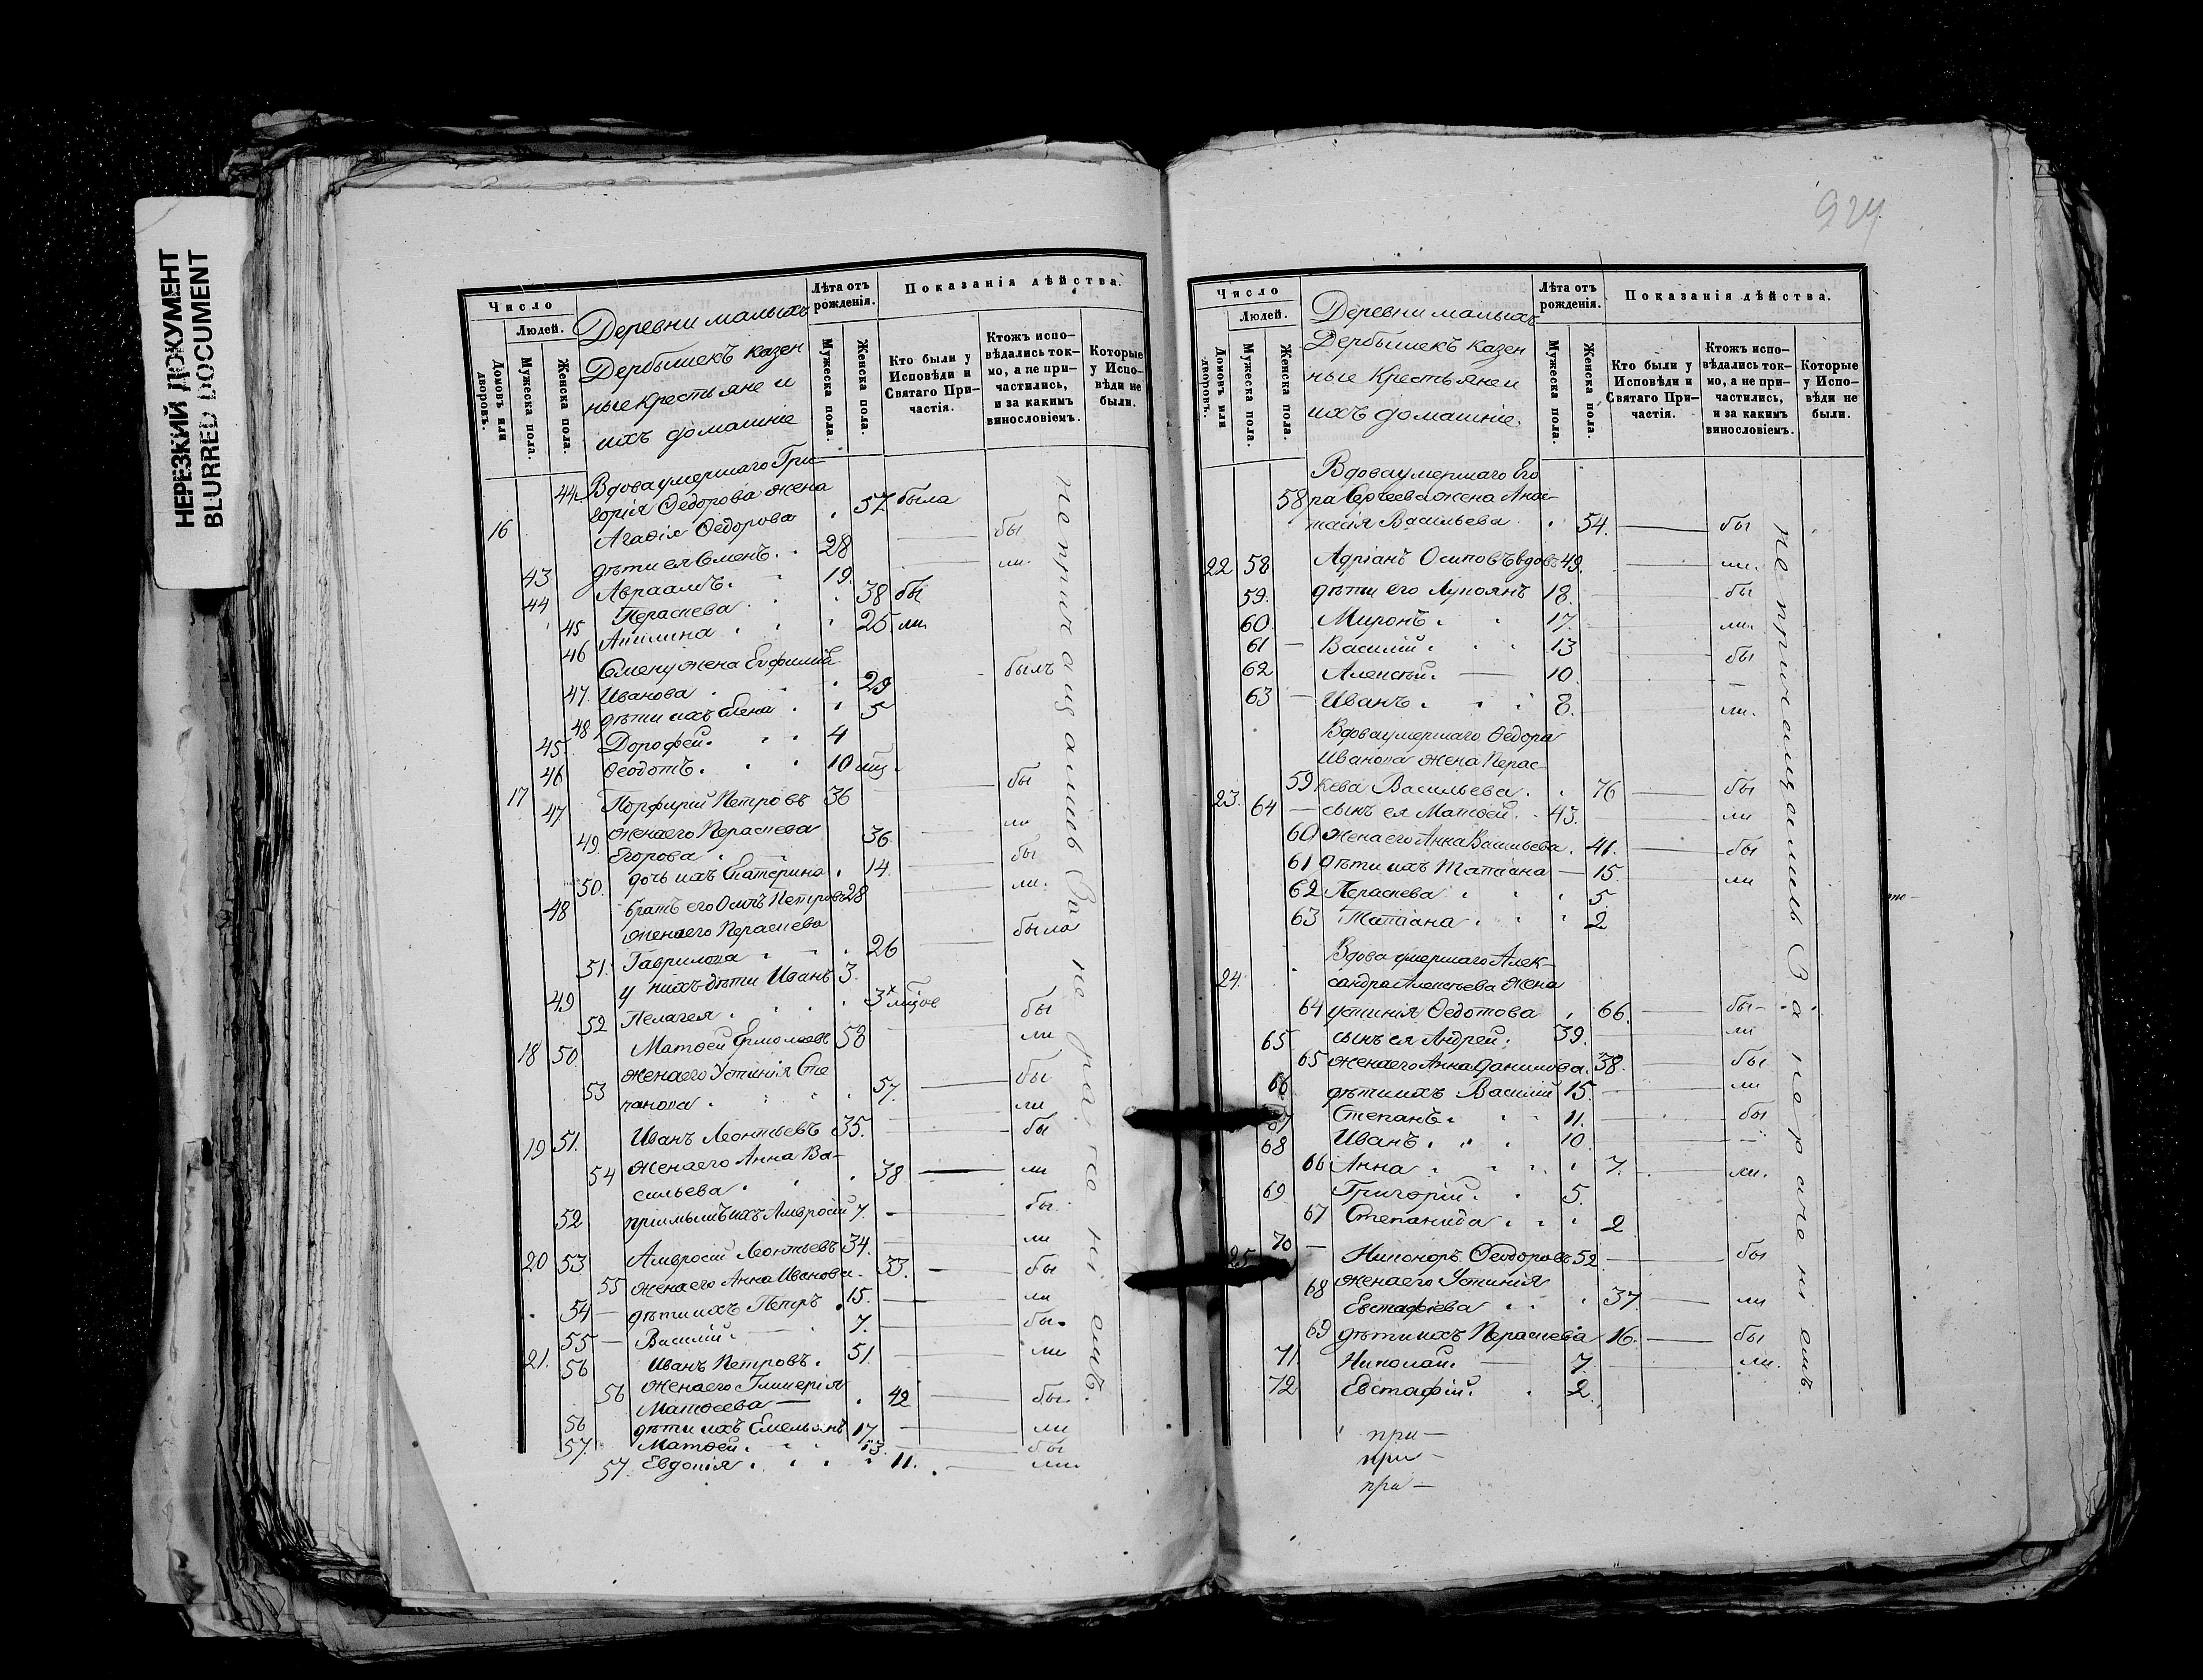 НЕРЕЗКИЙ ДОКУМЕНТ
BLURRED DOCUMENT
Число
Людей.
Домовъ или дворовъ.
Мужеска пола.
Женска пола.
Деревни малыхъ
Дербышекъ казен
ные крестьяне и
ихъ домашніе
Лѣта отъ рожденія.
Мужеска пола.
Женска пола.
Показанія дѣйства.
Кто были у Исповѣди и Святаго Причастія.
Ктожъ исповѣдались токмо, а не причастились, и за какимъ винословіемъ.
Которые у Исповѣди не были.
44 Вдова умершаго Гри-
горія Ѳедорова жена
16 Агафія Ѳедорова 57 была
43 дѣти ея Семенъ. 28 бы
44 Авраамъ. 19. ли.
45 Параскева 38 бы
46 Акилина 25 ли
Семену жена Евфимія
47. Иванова 29 былъ
48 дѣти ихъ Елена 5
45 Дорофей. 4
46 Ѳеодотъ. 10 мц.
17 47 Порфирій Петровъ 36 бы
жена его Параскева
49. Егорова 36 ли
50. дочь ихъ Екатерина 14. бы
48 братъ его Осипъ Петровъ 28 ли.
жена его Параскева
51. Гаврилова 26 была
49 у нихъ дѣти Иванъ 3.
52 Пелагея 3х мцов
18 50 Матѳей Ермолаевъ 58 бы
жена его Устинія Сте
53 панова 57. ли
19 51. Иванъ Леонтьевъ 35. бы
54 жена его Анна Ва-
сильева 38 ли
52 пріимышъ ихъ Амвросій 7. бы
20 53 Амвросій Леонтьевъ 34. ли
55 жена его Анна Иванова. 33. бы
54 дѣти ихъ Петръ 15. ли
55 Василій. 7. бы.
21. 56 Иванъ Петровъ. 51. ли
жена его Гликерія
56 Матѳеева 42 бы
56 дѣти ихъ Емельянъ 17 ли
57. Матѳей. 13. бы
57. Евдокія 11. ли.
924
Число
Людей.
Домовъ или дворовъ.
Мужеска пола.
Женска пола.
Деревни малыхъ
Дербышекъ казен
ные крестьяне и
ихъ домашніе.
Лѣта отъ рожденія.
Мужеска пола.
Женска пола.
Показанія дѣйства.
Кто были у Исповѣди и Святаго Причастія.
Ктожъ исповѣдались токмо, а не причастились, и за какимъ винословіемъ.
Которые у Исповѣди не были.
Вдова умершаго Его
58 ра Сергеева жена Анас-
тасія Васильева 54. бы
22 58 Адріанъ Осиповъ вдовъ 49. ли.
59. дѣти его Лукіянъ 18. бы
60. Миронъ. 17. ли.
61 Василій. 13 бы
62 Алексѣй. 10.
63 Иванъ. 8. ли.
Вдова умершаго Ѳедора
Иванова жена Парас-
59 кева Васильева. 76 бы
23. 64 сынъ ея Матѳей. 43. ли
60 жена его Анна Васильева. 41. бы
61 дѣти ихъ Татіана 15. ли
62 Параскева 5
63 Татіана 2
Вдова умершаго Алек-
24. сандра Алексѣева жена
64 Устинія Ѳедотова 66. бы
65 сынъ ея Андрей. 39. ли
65 жена его Анна Данилова. 38. бы
66 дѣти ихъ Василій 15. ли
67 Степанъ. 11. бы
68 Иванъ. 10
66 Анна 7. ли.
69 Григорій. 5.
67 Степанида 2
25 70 Никоноръ Ѳеодоровъ 52 бы
68 жена его Устинія
Евстафіева 37 ли
69 дѣти ихъ Параскева 16. бы
71. Николай. 7. ли.
72 Евстафій. 2.
при-
при-
при-